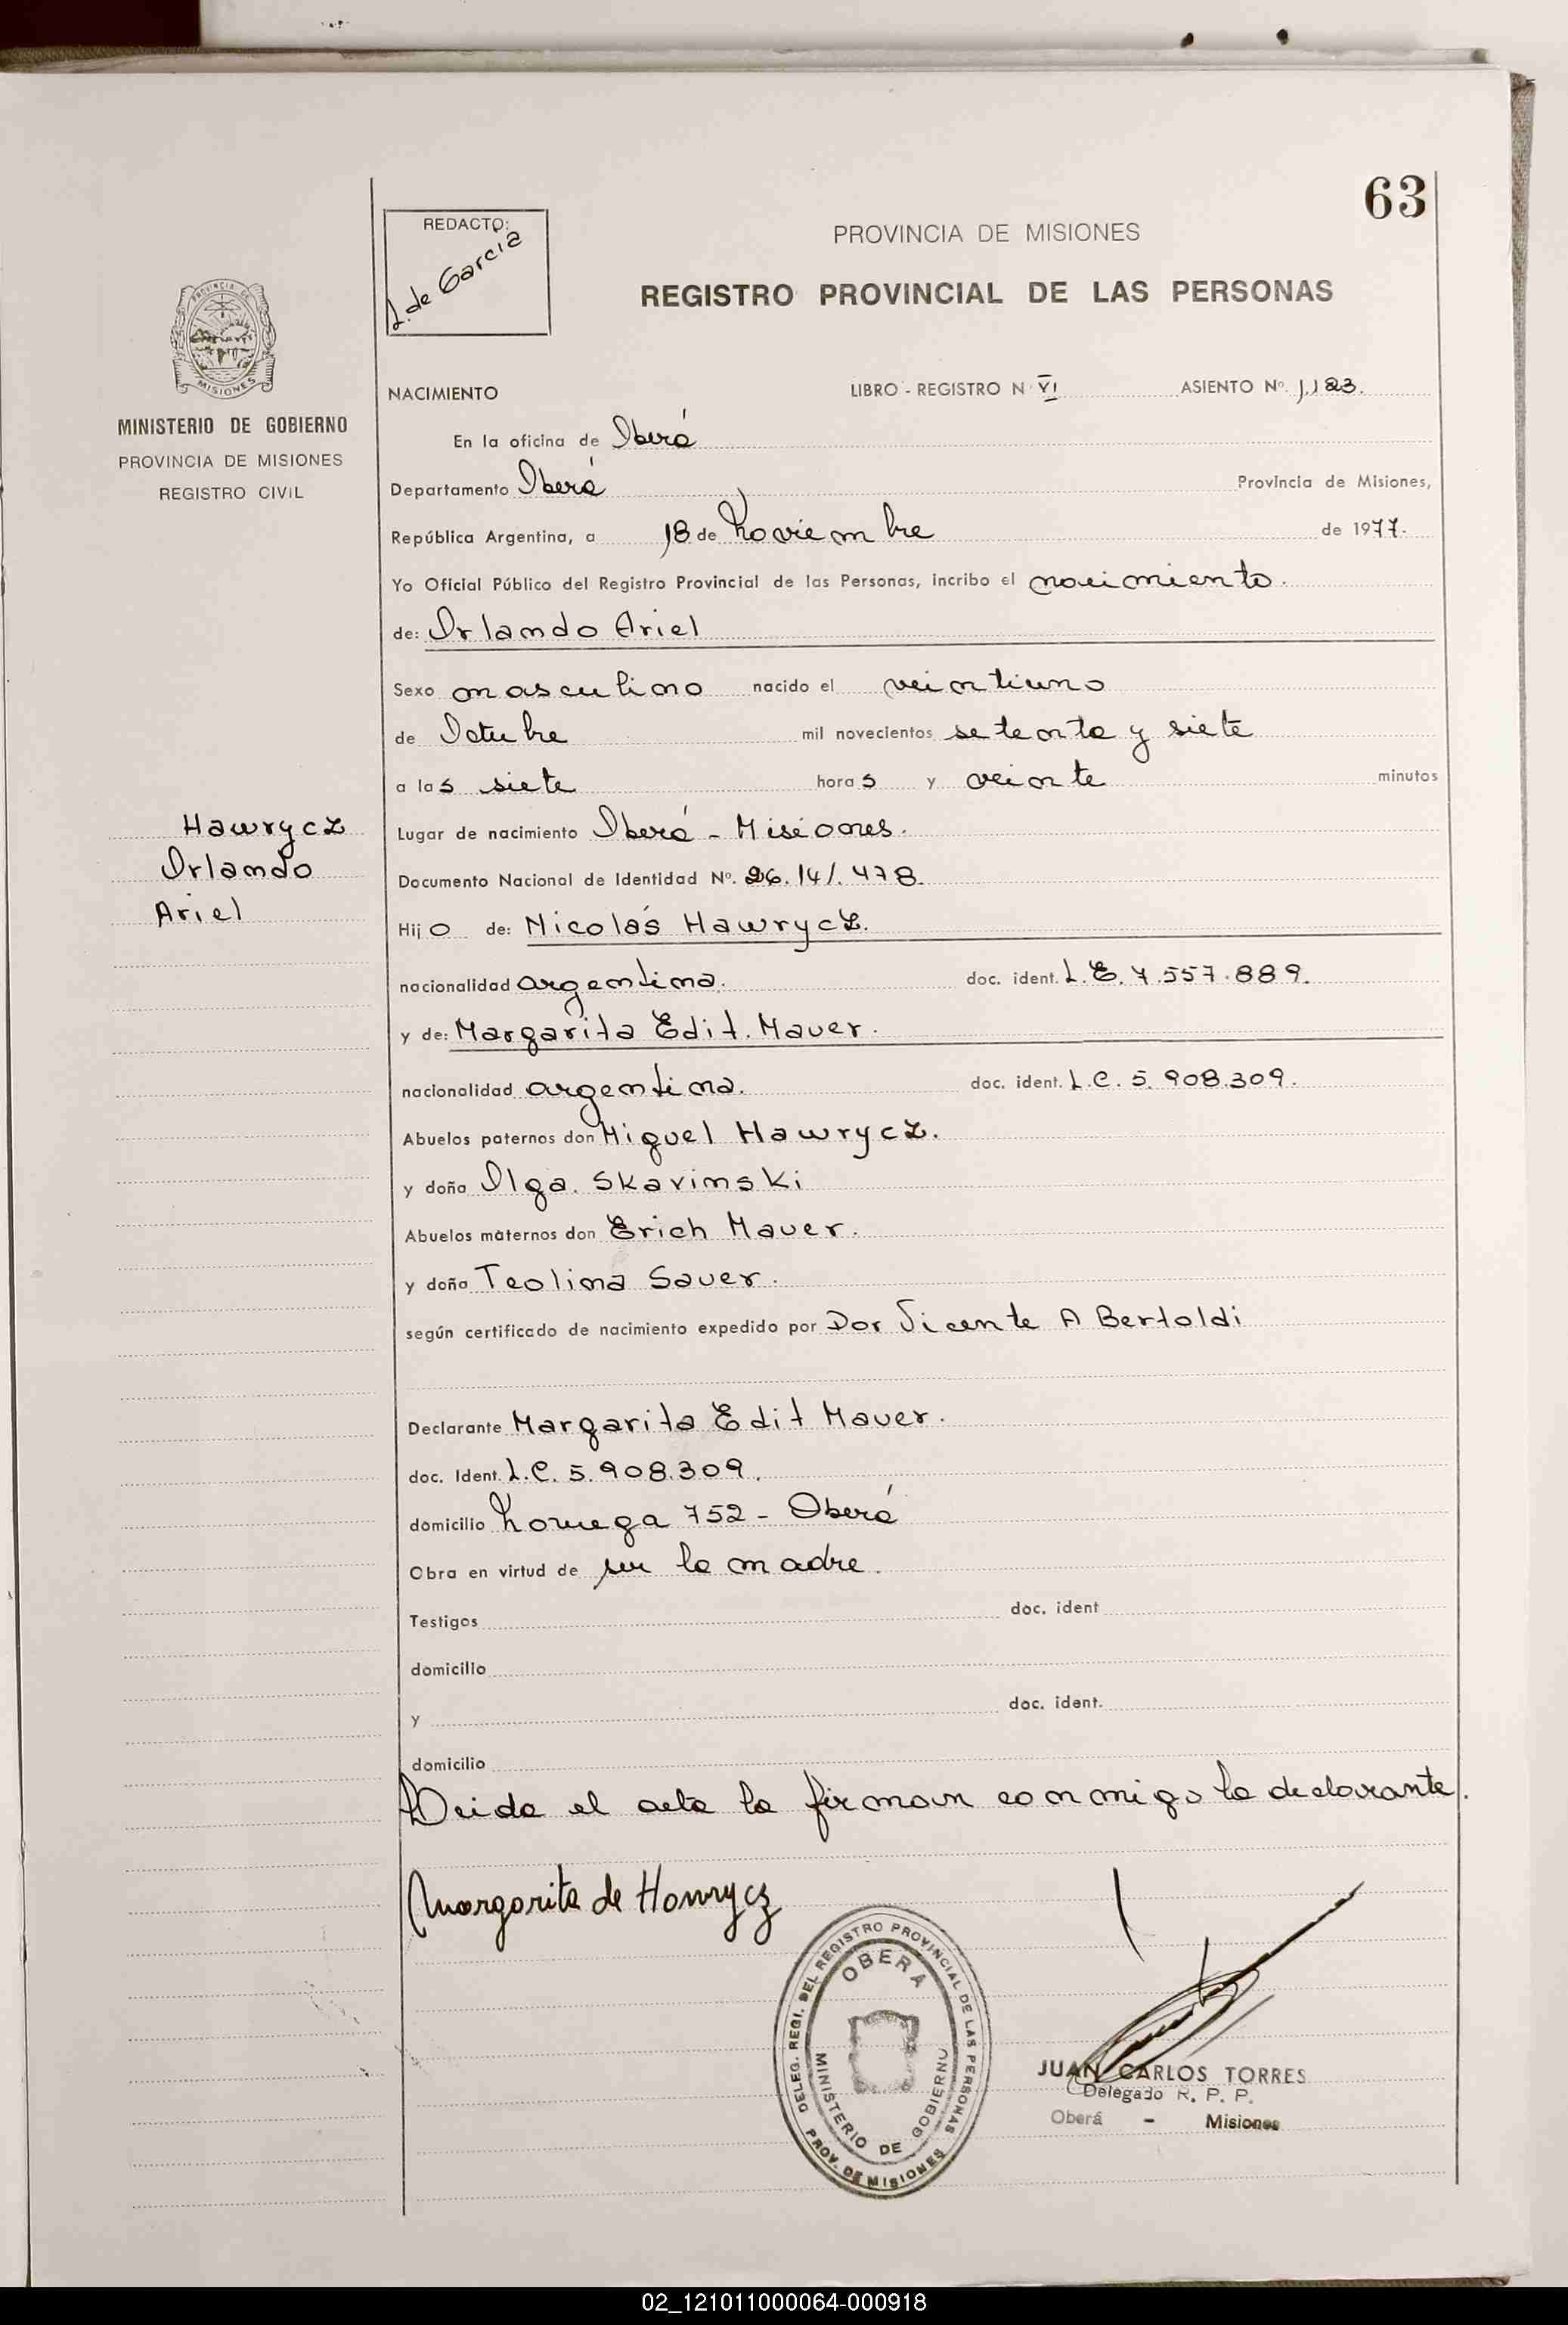 63
REDACTO:
L. de Garcia
PROVINCIA DE MISIONES
REGISTRO PROVINCIAL DE LAS PERSONAS
PROVINCIA DE
MISIONES
MINISTERIO DE GOBIERNO
PROVINCIA DE MISIONES
REGISTRO CIVIL
NACIMIENTO LIBRO - REGISTRO N VI ASIENTO Nº. 1.123.
En la oficina de Oberá
Departamento Oberá Provincia de Misiones,
República Argentina, a 18 de Noviembre de 1977.
Yo Oficial Público del Registro Provincial de las Personas, incribo el nacimiento.
de: Orlando Ariel
Sexo masculino nacido el veintiuno
de Octubre mil novecientos setenta y siete
a las siete horas y veinte minutos
Hawrycz
Orlando
Ariel
Lugar de nacimiento Oberá - Misiones.
Documento Nacional de Identidad Nº. 26.141.478.
Hijo de: Nicolás Hawrycz.
nacionalidad argentina. doc. ident. L.E. 7.557.889.
y de: Margarita Edit. Mauer.
nacionalidad argentina. doc. ident. L.C. 5.908.309.
Abuelos paternos don Miguel Hawrycz.
y doña Olga. Skavinski
Abuelos maternos don Erich Mauer.
y doña Teolina Sauer.
según certificado de nacimiento expedido por Dor Vicente A Bertoldi
Declarante Margarita Edit Mauer.
doc. Ident. L.C. 5.908.309.
domicilio Noruega 752 - Oberá
Obra en virtud de ser la madre.
Testigos doc. ident
domicilio
y doc. ident.
domicilio
Leida el acta la firman conmigo la declarante.
Margarita de Hawrycz
DELEG. REGI. DEL REGISTRO PROVINCIAL DE LAS PERSONAS
PROV. DE MISIONES
OBERA
MINISTERIO DE GOBIERNO
JUAN CARLOS TORRES
Delegado R. P. P.
Oberá - Misiones
02_121011000064-000918